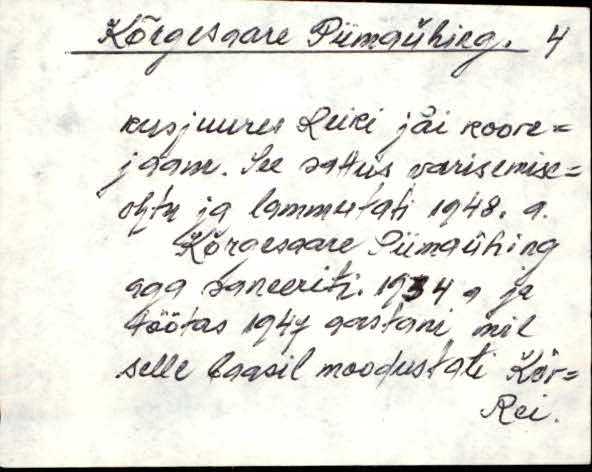 Kõrgesaare Piimaühing. 4
kusjuures Reiki jäi koore=
jaam. See sattus varisemise=
ohtu ja lammutati 1948. a.
Kõrgesaare Piimaühing
aga saneeriti. 1934 a ja
töötas 1947 aastani mil
selle baasil moodustati Kõr=
Rei.